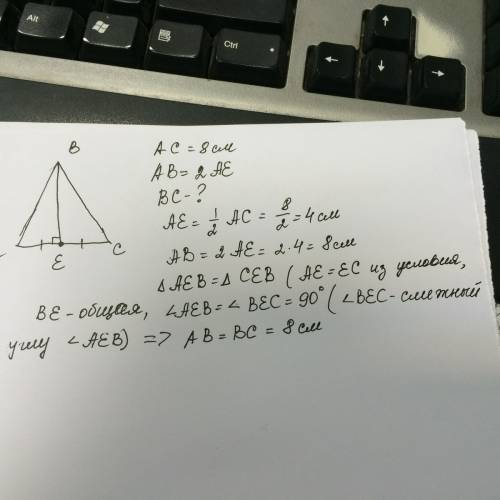 Alt
Ctrl
B
E
C
AC = 8 см
AB = 2 AE
BC - ?
AE = 1/2 AC = 8/2 = 4 см
AB = 2 AE = 2·4 = 8 см
△ AEB = △ CEB ( AE = EC из условия,
BE - общая, ∠AEB = ∠ BEC = 90° ( ∠BEC - смежный
углу ∠AEB) => AB = BC = 8 см